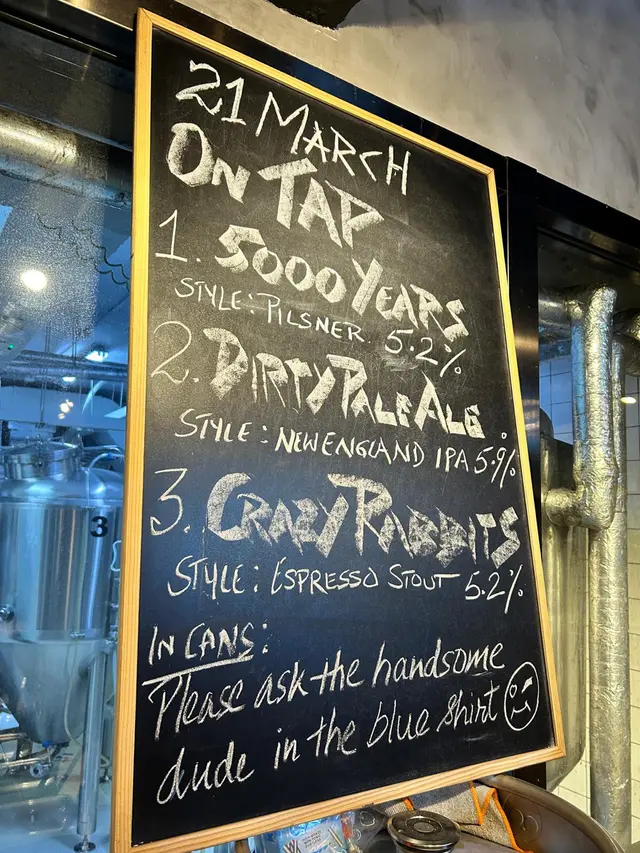 21 MARCH
ON TAP
1. 5000 YEARS
STYLE: PILSNER. 5.2%
2. DIRTY PALE ALE.
STYLE: NEW ENGLAND IPA 5.9%
3. CRAZY RABBITS
STYLE: ESPRESSO STOUT 5.2%
IN CANS:
Please ask the handsome
dude in the blue shirt
3